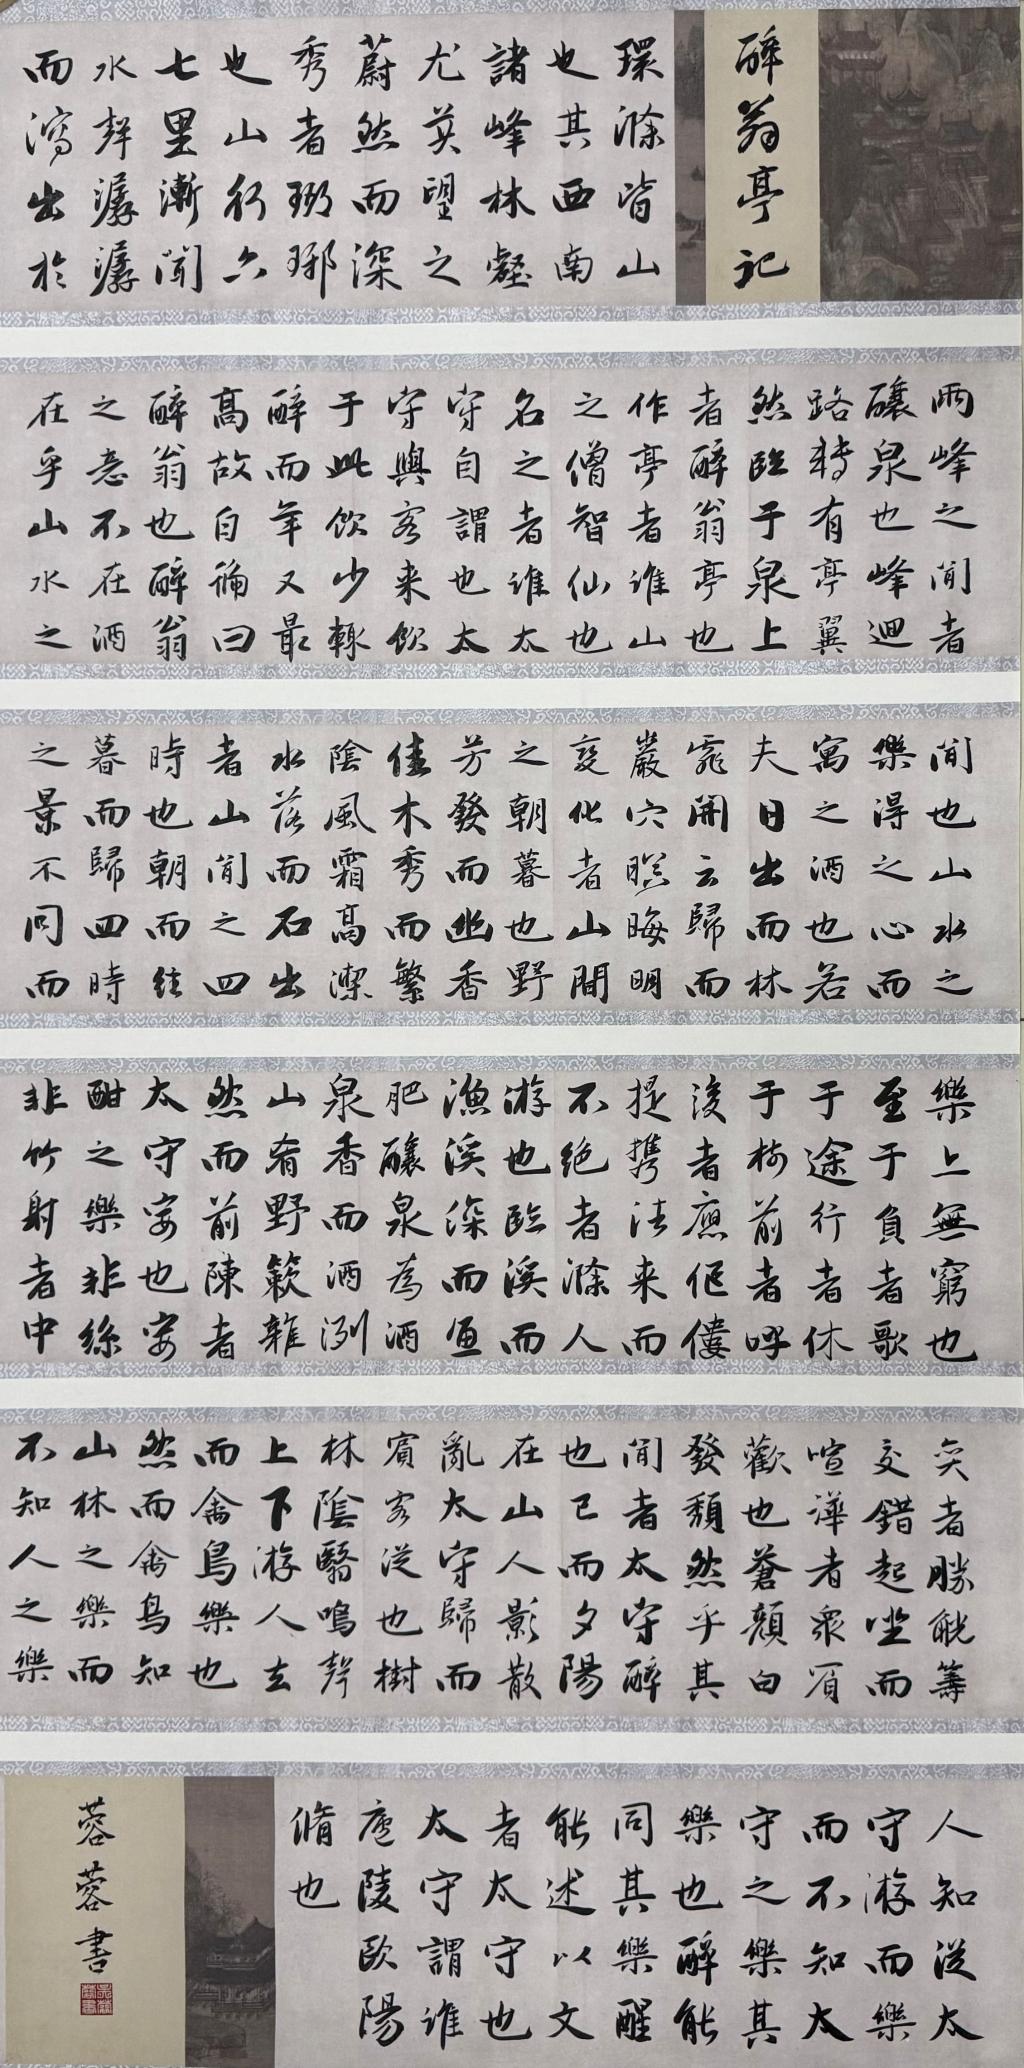 醉翁亭記
環滁皆山
也其西南
諸峰林壑
尤美望之
蔚然而深
秀者瑯琊
也山行六
七里漸聞
水聲潺潺
而瀉出於
兩峰之間者
釀泉也峰迴
路轉有亭翼
然臨于泉上
者醉翁亭也
作亭者誰山
之僧智仙也
名之者誰太
守自謂也太
守與客来飲
于此飲少輒
醉而年又最
高故自號曰
醉翁也醉翁
之意不在酒
在乎山水之
間也山水之
樂得之心而
寓之酒也若
夫日出而林
霏開云歸而
巖穴暝晦明
變化者山間
之朝暮也野
芳發而幽香
佳木秀而繁
陰風霜高潔
水落而石出
者山間之四
時也朝而往
暮而歸四時
之景不同而
樂上無窮也
至于負者歌
于途行者休
于樹前者呼
後者應傴僂
提攜往来而
不絕者滁人
游也臨溪而
漁溪深而魚
肥釀泉為酒
泉香而酒洌
山肴野蔌雜
然而前陳者
太守宴也宴
酣之樂非絲
非竹射者中
弈者勝觥籌
交錯起坐而
喧譁者眾賓
歡也蒼顏白
發頹然乎其
間者太守醉
也已而夕陽
在山人影散
亂太守歸而
賓客從也樹
林陰翳鳴聲
上下游人去
而禽鳥樂也
然而禽鳥知
山林之樂而
不知人之樂
人知從太
守游而樂
而不知太
守之樂其
樂也醉能
同其樂醒
能述以文
者太守也
太守謂誰
廬陵歐陽
脩也
蓉蓉書